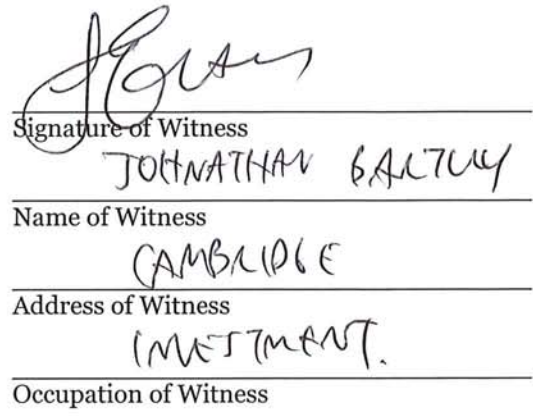 Signature of Witness
JOHNATHAN
Name of Witness
CAMBRIDGE
Address of Witness
INVESTMENT.
Occupation of Witness